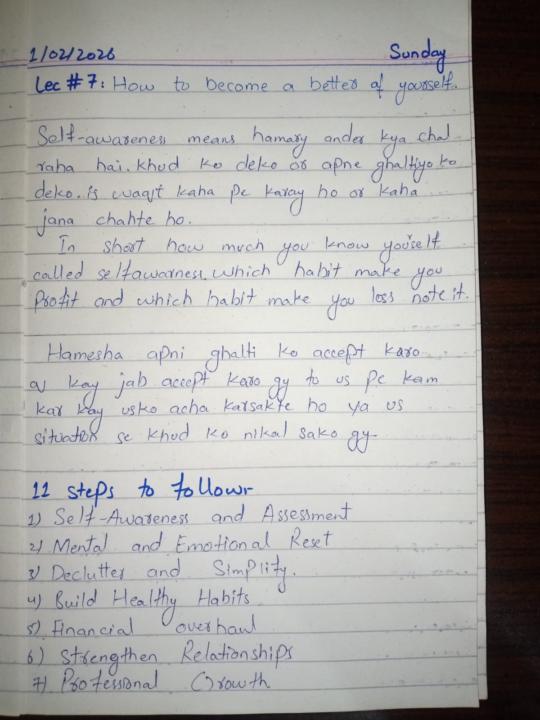 1/02/2026 Sunday
Lec # 7: How to become a better of yourself.
Self-awareness means hamary ander kya chal
raha hai. khud ko deko or apne ghaltiyo ko
deko. is waqt kaha pe karay ho or kaha
jana chahte ho.
In short how much you know youself
called selfawarness. which habit make you
Profit and which habit make you loss note it.
Hamesha apni ghalti ko accept karo
q kay jab accept karo gy to us pe kam
kar kay usko acha karsakte ho ya us
situation se khud ko nikal sako gy.
11 steps to follow:-
1) Self-Awareness and Assessment
2) Mental and Emotional Reset
3) Declutter and Simplify.
4) Build Healthy Habits
5) Financial overhaul
6) Strengthen Relationships
7) Professional Growth